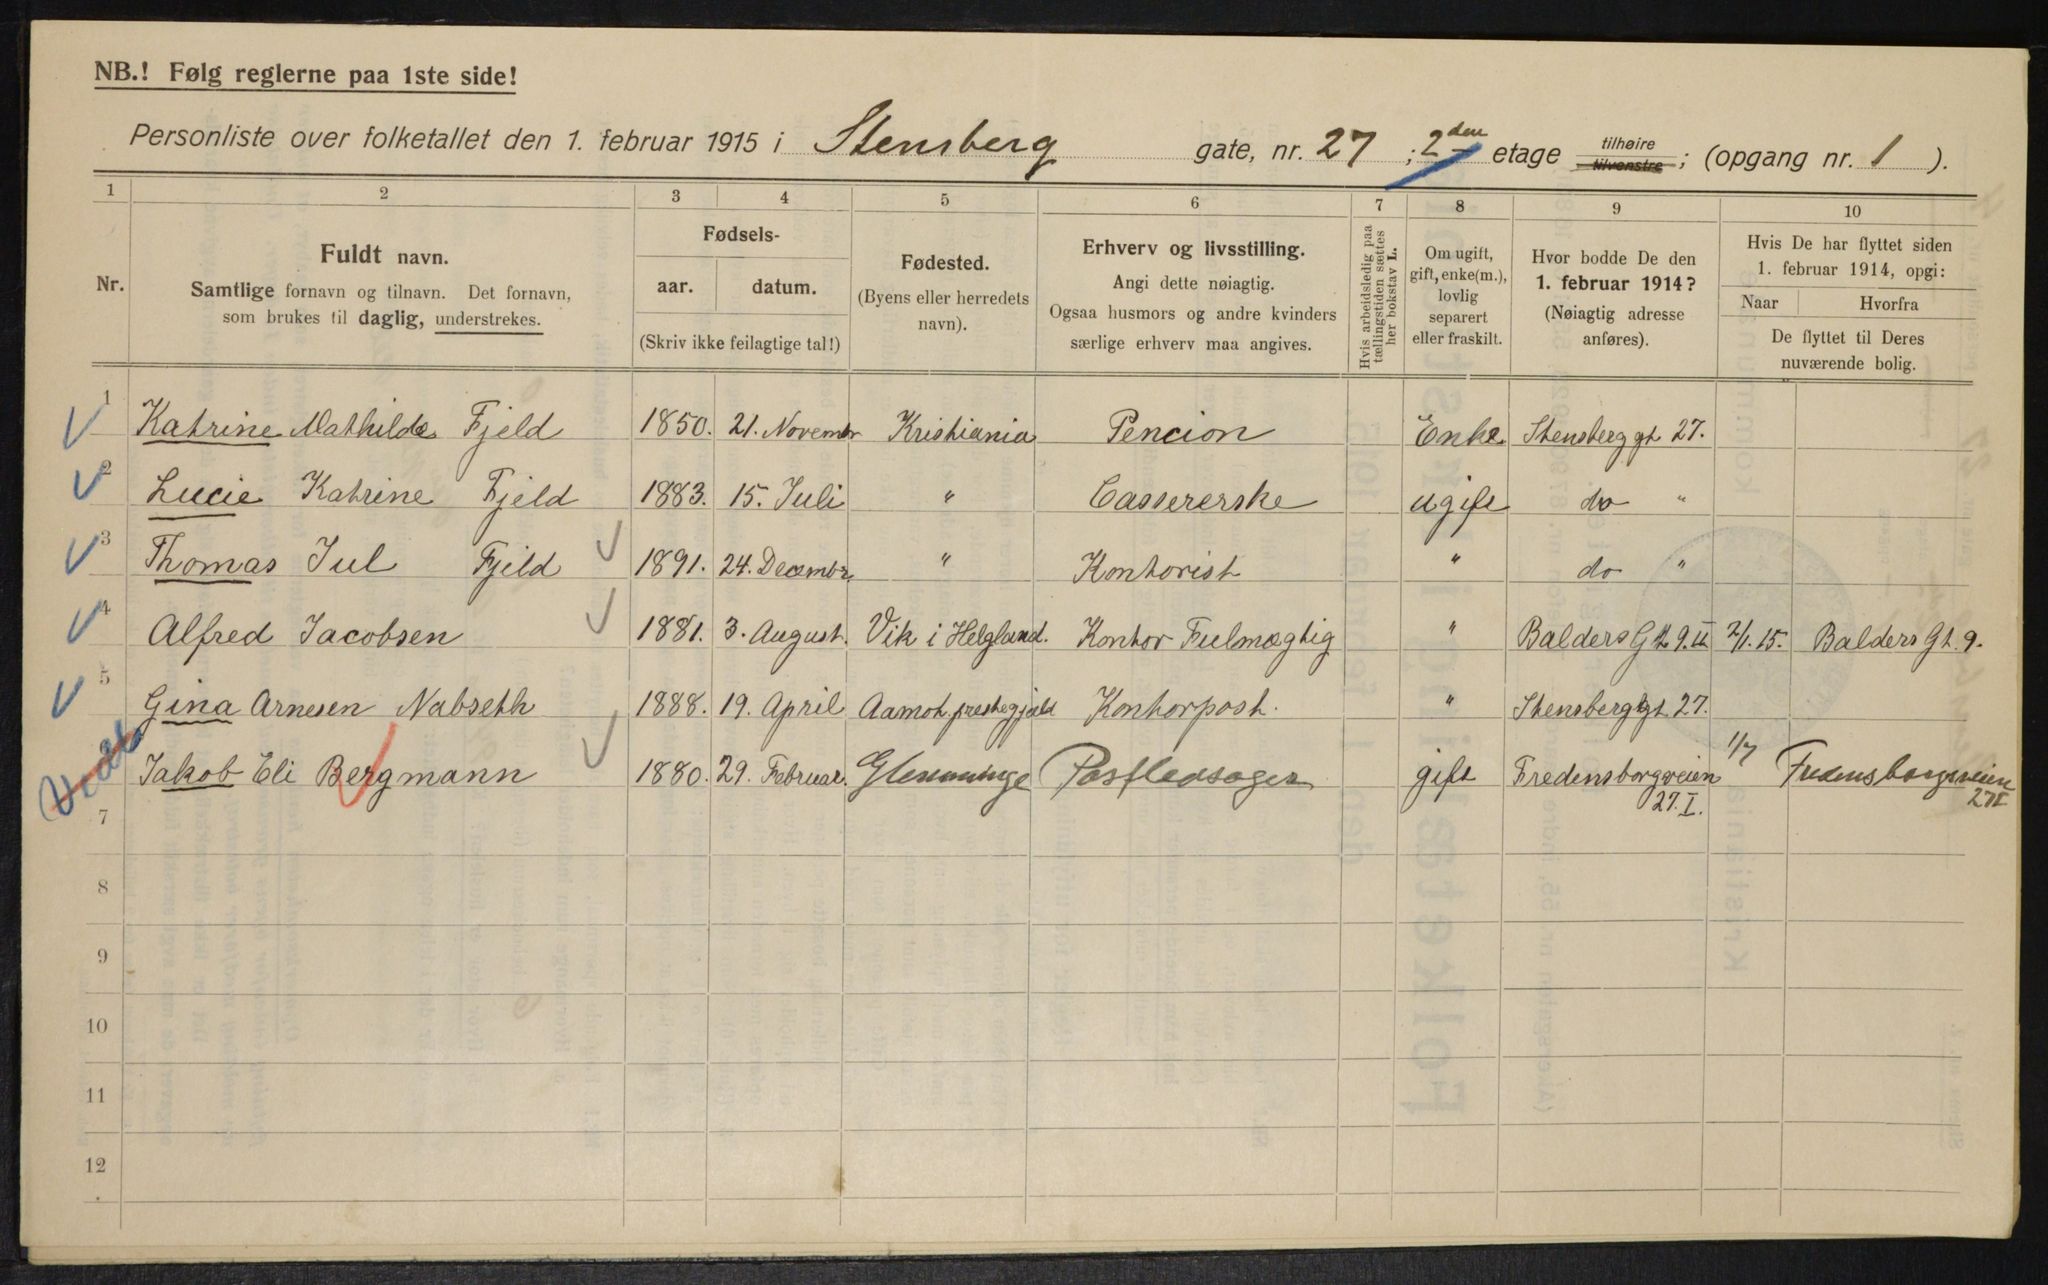 NB.! Følg reglerne paa 1ste side!
Personliste over folketallet den 1. februar 1915 i Stensberg gate, nr. 27 ; 2den etage tilhøire tilvenstre ; (opgang nr. 1 ).
1 2 3 4 5 6 7 8 9 10
Nr.
Fuldt navn.
Samtlige fornavn og tilnavn. Det fornavn,
som brukes til daglig, understrekes.
Fødsels-
aar. datum.
(Skriv ikke feilagtige tal!)
Fødested.
(Byens eller herredets
navn).
Erhverv og livsstilling.
Angi dette nøiagtig.
Ogsaa husmors og andre kvinders
særlige erhverv maa angives.
Hvis arbeidsledig paa
tællingstiden sættes
her bokstav L.
Om ugift,
gift, enke(m.),
lovlig
separert
eller fraskilt.
Hvor bodde De den
1. februar 1914?
(Nøiagtig adresse
anføres).
Hvis De har flyttet siden
1. februar 1914, opgi:
Naar Hvorfra
De flyttet til Deres
nuværende bolig.
1 Katrine Mathilde Fjeld 1850. 21. Novembr Kristiania Pencion Enke Stensberg gt 27.
2 Lucie Katrine Fjeld 1883. 15. Juli " Cassererske ugift do "
3 Thomas Jul Fjeld 1891. 24. Decembr. " Kontorist " do "
4 Alfred Jacobsen 1881. 3. August. Vik i Helgland. Kontor Fulmægtig " Balders Gt 9. II 2/1. 15. Balders Gt. 9.
5 Gina Arnesen Nabseth 1888. 19. April Aamot prestegjæld Kontorpost. " Stensberggt 27.
6 Jakob Eli Bergmann 1880. 29. Februar. Glemminge Postledsager gift Fredensborgveien 1/7 Fredensborgveien
27. I. 27 I
7
8
9
10
11
12